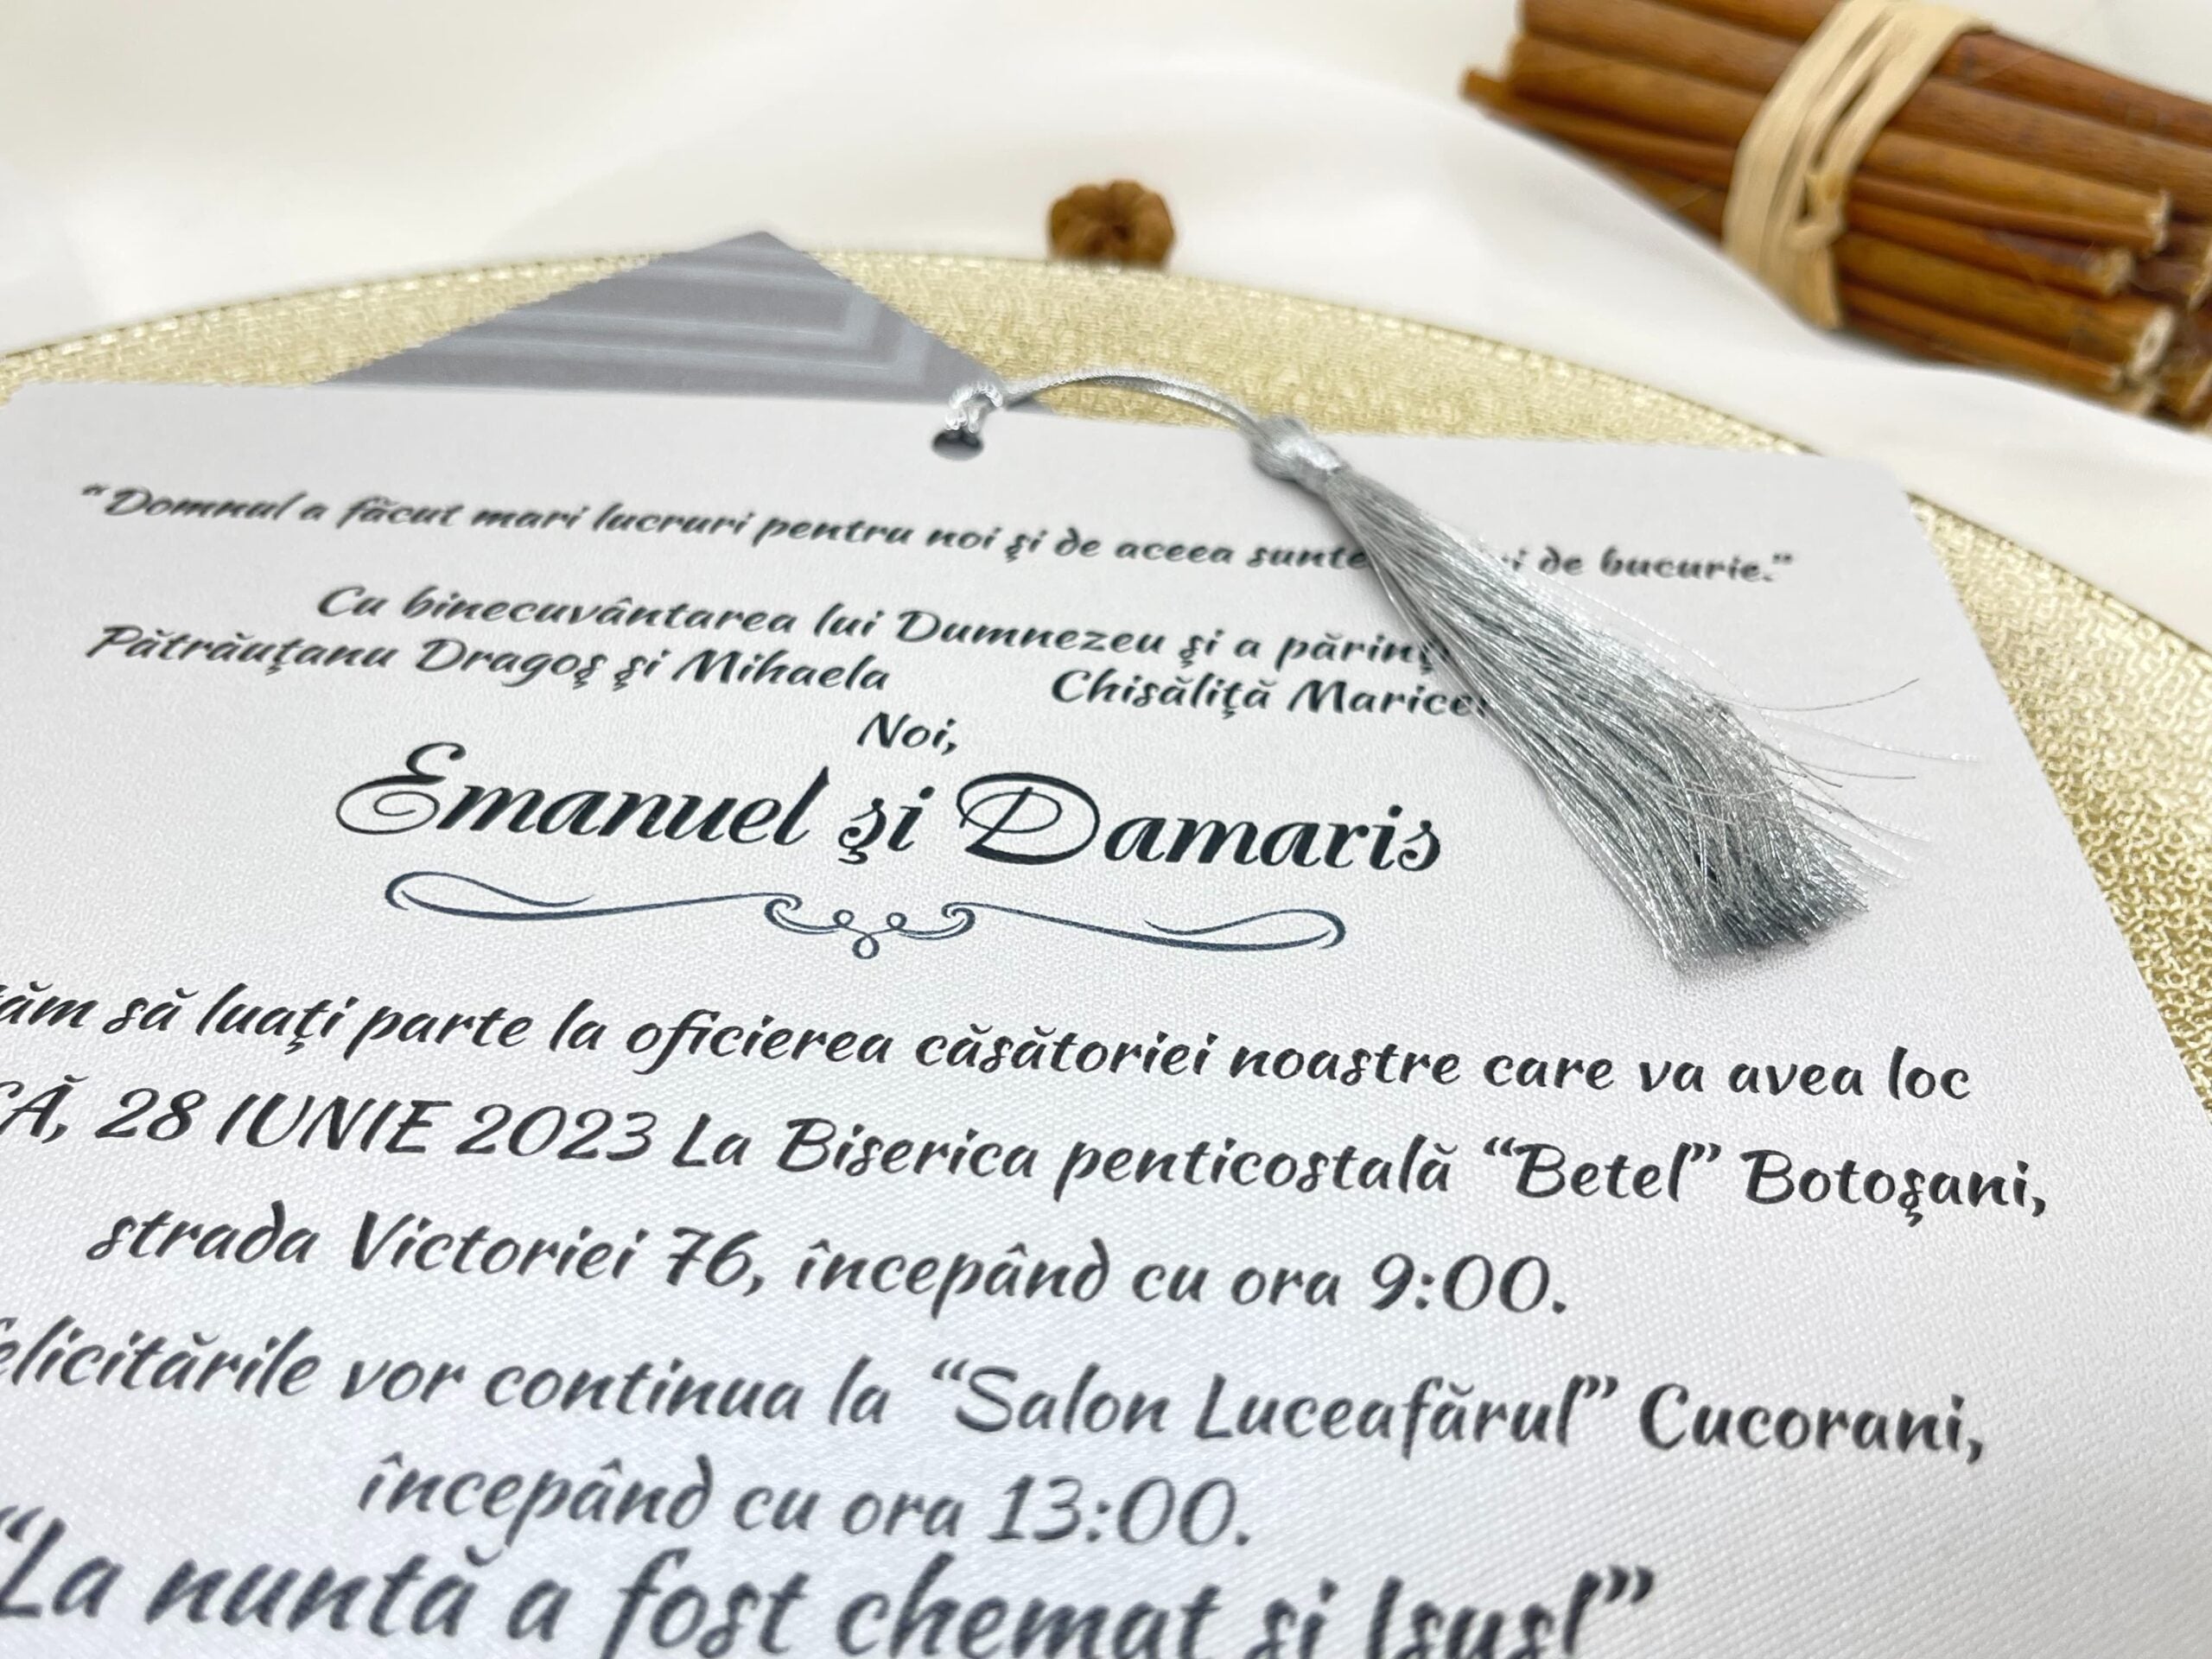 “Domnul a făcut mari lucruri pentru noi şi de aceea de bucurie.”
Cu binecuvântarea lui Dumnezeu şi a
Pătrăuţanu Dragoş şi Mihaela Chisăliţă
Noi,
Emanuel şi Damaris
să luaţi parte la oficierea căsătoriei noastre care va avea loc
28 IUNIE 2023 La Biserica penticostală “Betel” Botoşani,
strada Victoriei 76, începând cu ora 9:00.
vor continua la “Salon Luceafărul” Cucorani,
începând cu ora 13:00.
“La nuntă a fost chemat şi Isus!”